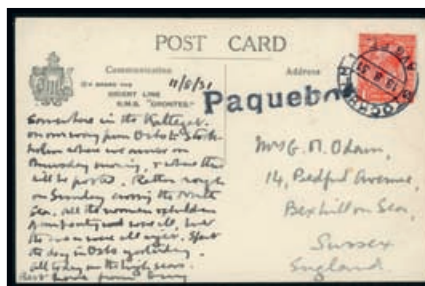 POST CARD
Communication
11/8/31
Address
ON BOARD THE
ORIENT LINE
R.M.S. "ORONTES"
Paquebot
STOCKHOLM
Somewhere in the Kattegat
on our way from Oslo to Stock-
holm where we arrive on
Thursday morning, & where this
will be posted. Rather rough
on Sunday crossing the North
Sea. All the women
were ill, but
the men were all right. Spent
the day in Oslo yesterday.
All today on the high seas.
Best love from
Mrs G. M. Odam,
14, Bedford Avenue,
Bexhill on Sea,
Sussex
England.